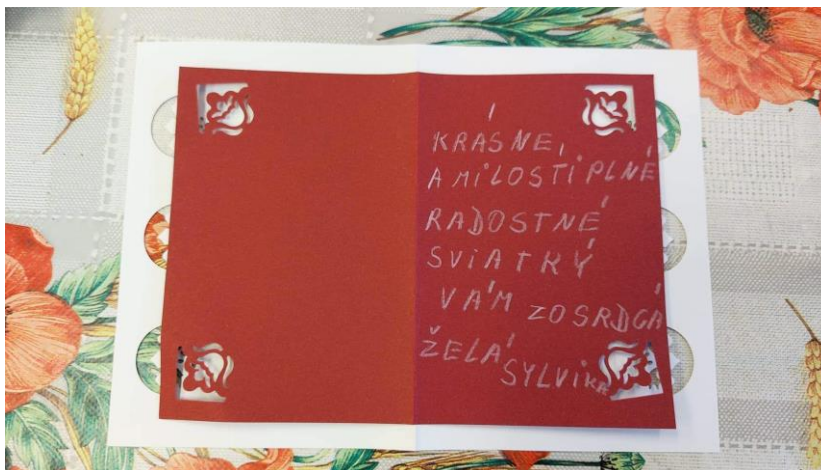 KRÁSNE,
A MILOSTIPLNÉ
RADOSTNÉ
SVIATKÝ
VÁM ZOSRDCÁ
ŽELÁ
SYLVIKA